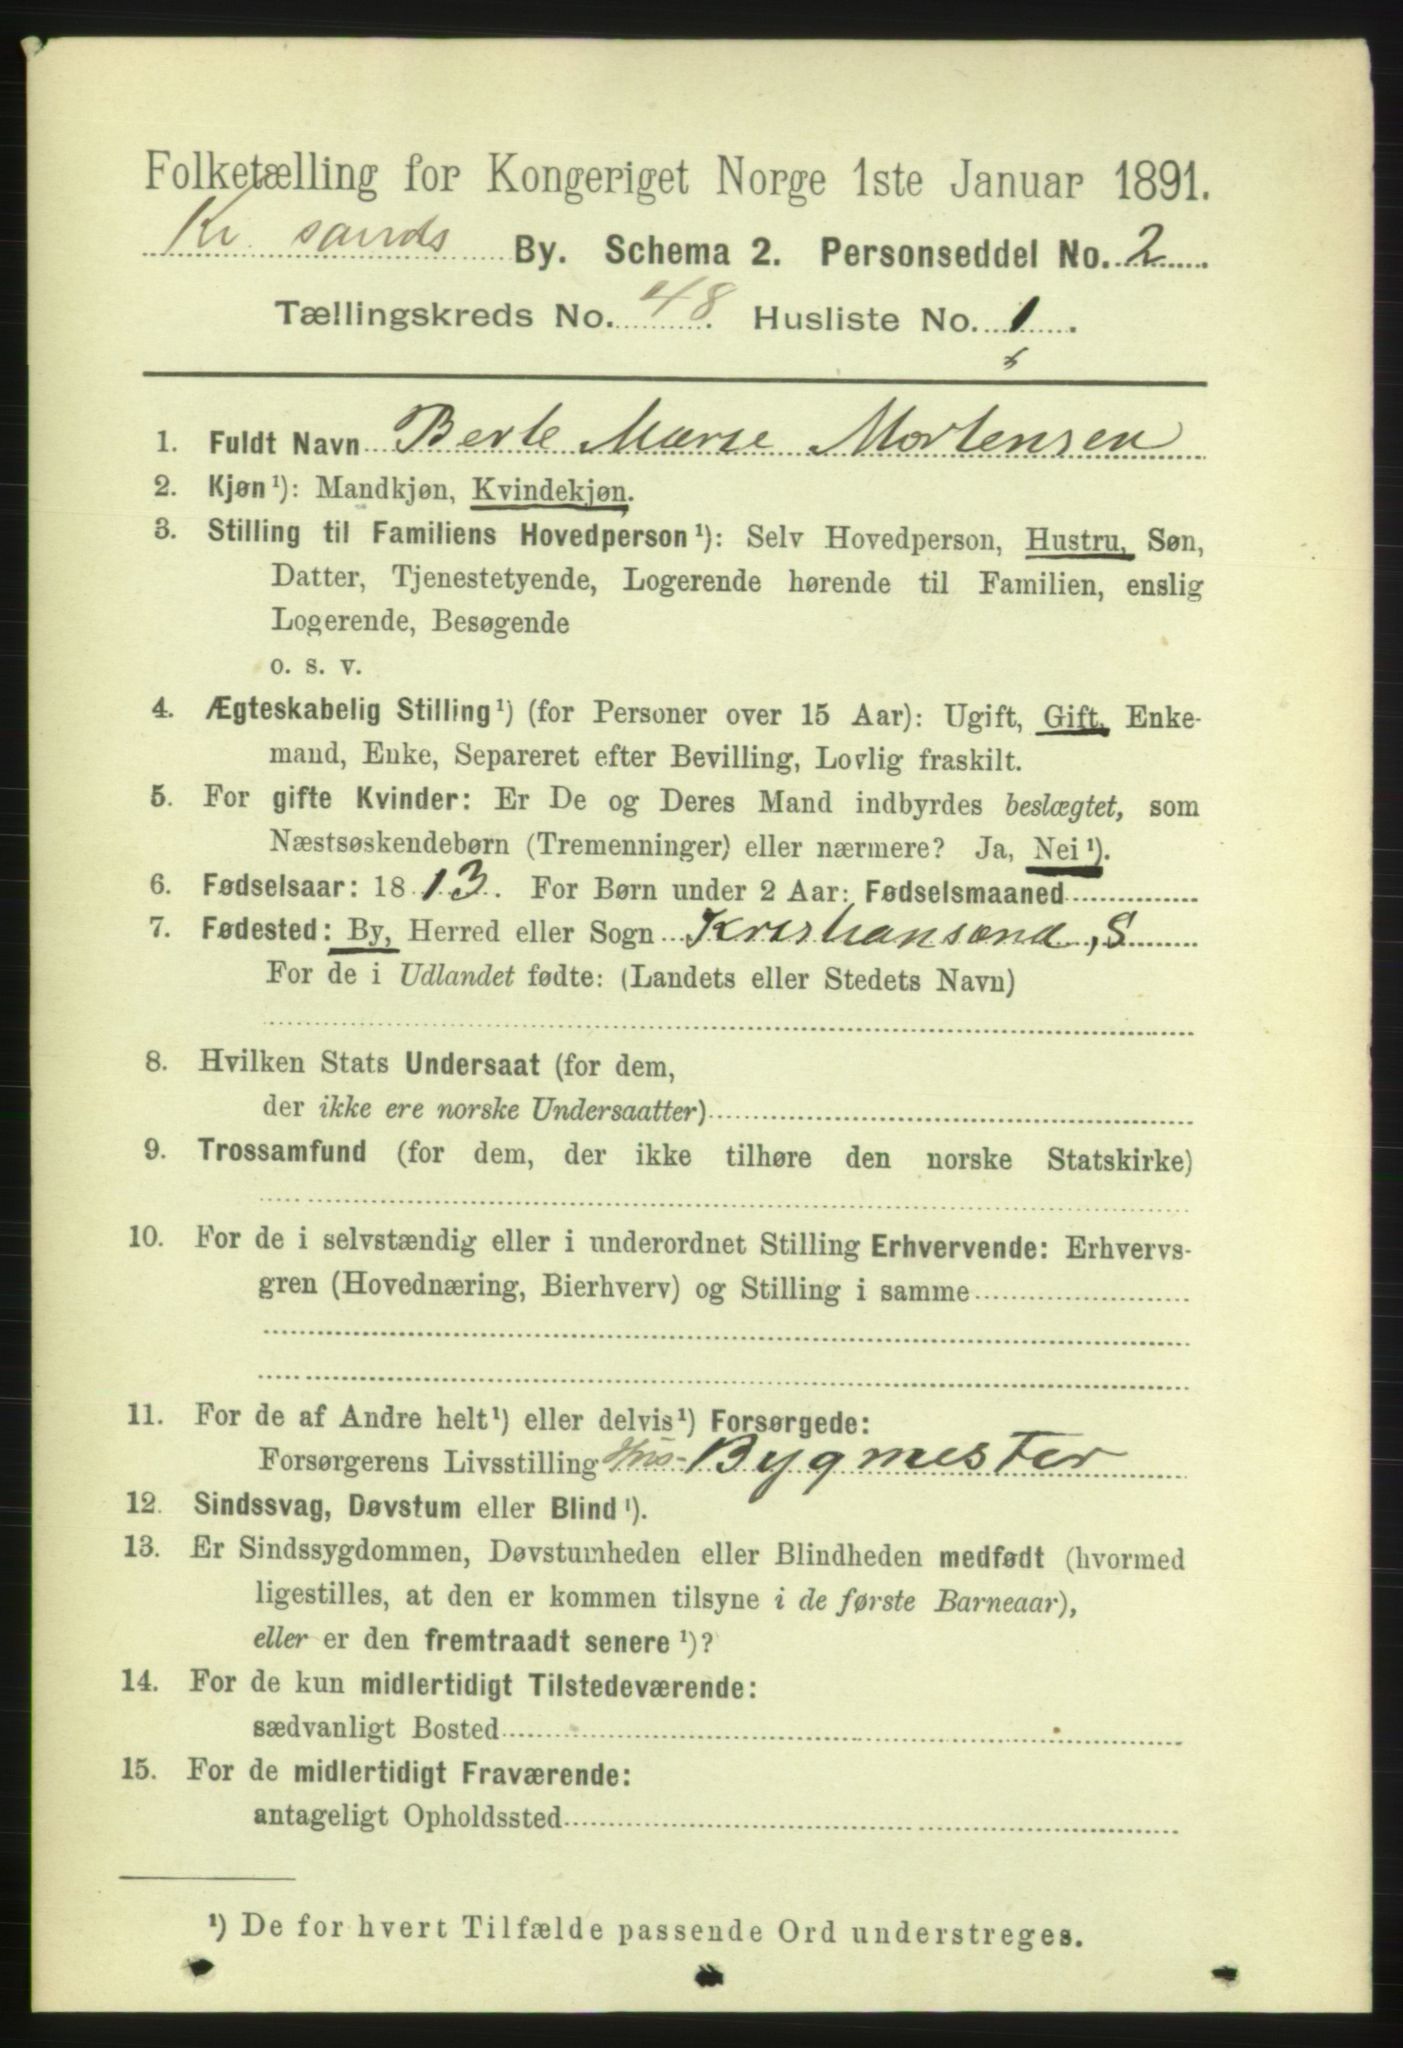 Folketælling for Kongeriget Norge 1ste Januar 1891.
Kr sands By. Schema 2. Personseddel No. 2
Tællingskreds No. 48. Husliste No. 1.
1. Fuldt Navn Berte Marie Mortensen
2. Kjøn¹): Mandkjøn, Kvindekjøn.
3. Stilling til Familiens Hovedperson¹): Selv Hovedperson, Hustru, Søn,
Datter, Tjenestetyende, Logerende hørende til Familien, enslig
Logerende, Besøgende
o. s. v.
4. Ægteskabelig Stilling¹) (for Personer over 15 Aar): Ugift, Gift, Enke-
mand, Enke, Separeret efter Bevilling, Lovlig fraskilt.
5. For gifte Kvinder: Er De og Deres Mand indbyrdes beslægtet, som
Næstsøskendebørn (Tremenninger) eller nærmere? Ja, Nei¹).
6. Fødselsaar: 1813. For Børn under 2 Aar: Fødselsmaaned
7. Fødested: By, Herred eller Sogn Kristiansand, S
For de i Udlandet fødte: (Landets eller Stedets Navn)
8. Hvilken Stats Undersaat (for dem,
der ikke ere norske Undersaatter)
9. Trossamfund (for dem, der ikke tilhøre den norske Statskirke)
10. For de i selvstændig eller i underordnet Stilling Erhvervende: Erhvervs-
gren (Hovednæring, Bierhverv) og Stilling i samme
11. For de af Andre helt¹) eller delvis¹) Forsørgede:
Forsørgerens Livsstilling Hus-Bygmester
12. Sindssvag, Døvstum eller Blind¹).
13. Er Sindssygdommen, Døvstumheden eller Blindheden medfødt (hvormed
ligestilles, at den er kommen tilsyne i de første Barneaar),
eller er den fremtraadt senere¹)?
14. For de kun midlertidigt Tilstedeværende:
sædvanligt Bosted
15. For de midlertidigt Fraværende:
antageligt Opholdssted
¹) De for hvert Tilfælde passende Ord understreges.